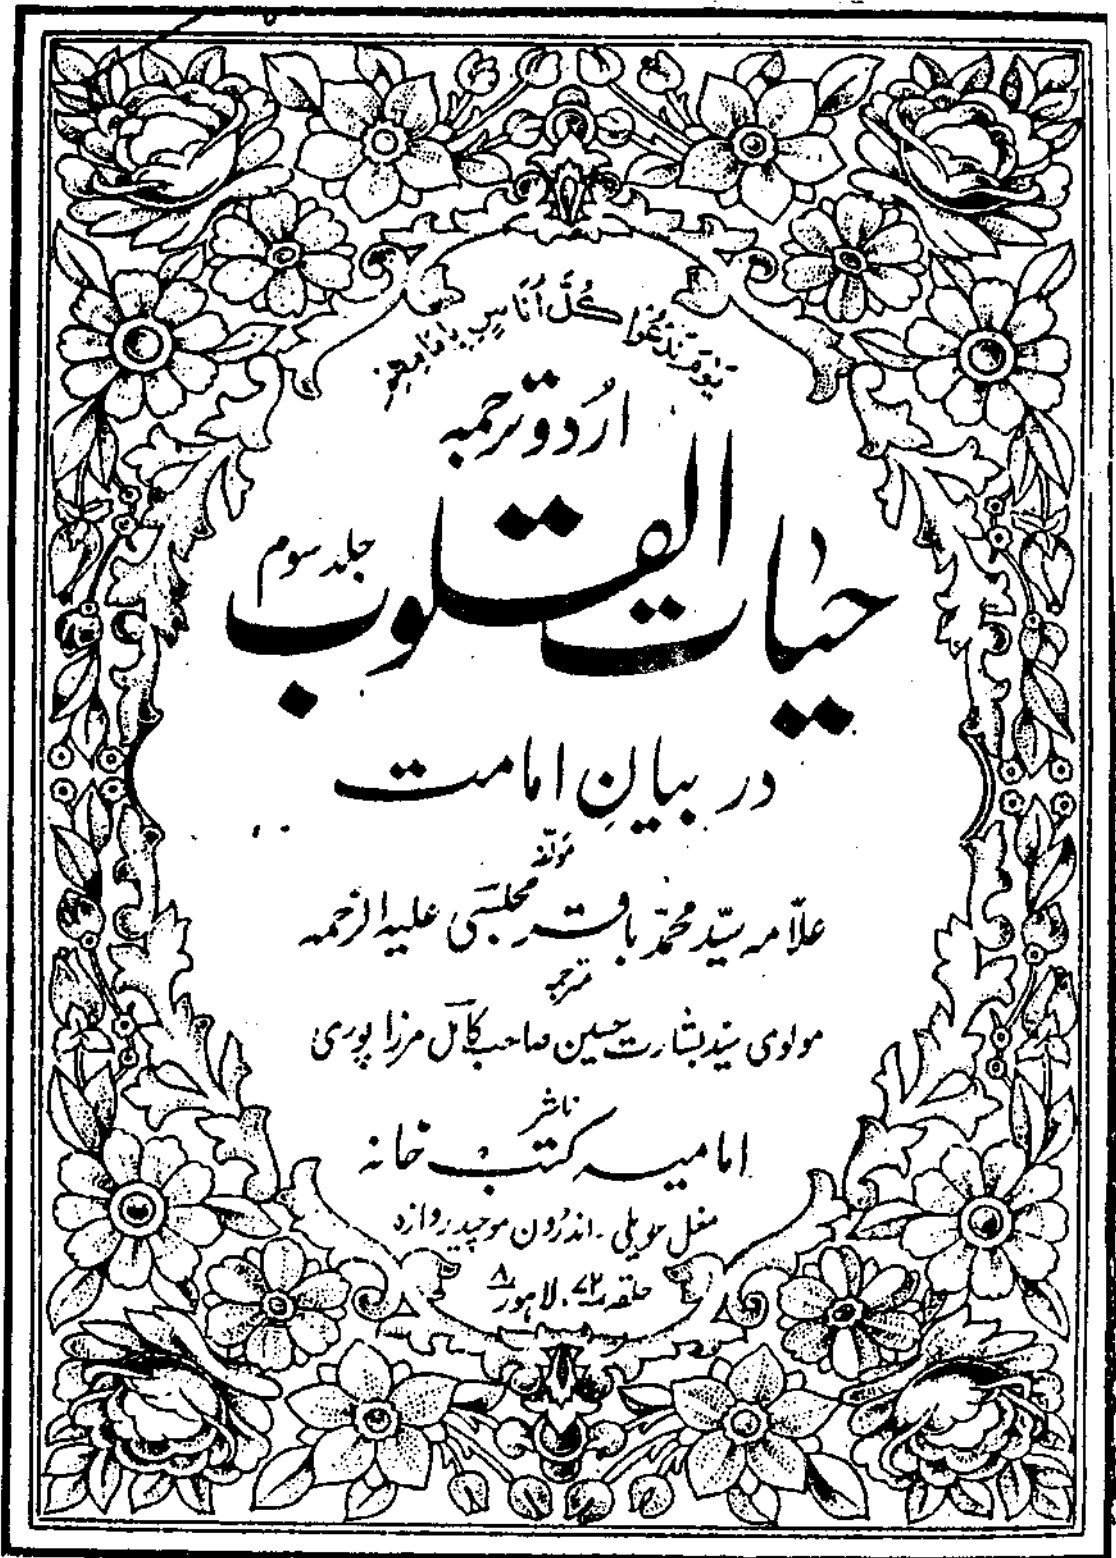 يَوْمَ نَدْعُوا كُلَّ أُنَاسٍ بِإِمَامِهِمْ
اُردو ترجمہ
حیات القلوب
جلد سوم
در بیانِ امامت
مؤلفہ
علّامہ سیّد محمّد باقر مجلسی علیہ الرحمہ
مترجمہ
مولوی سیّد بشارت حسین صاحب کامل مرزا پوری
ناشر
امامیہ کتب خانہ
مغل حویلی ۔ اندرون موچیدروازہ
حلقہ ۷۲، لاہور ۸